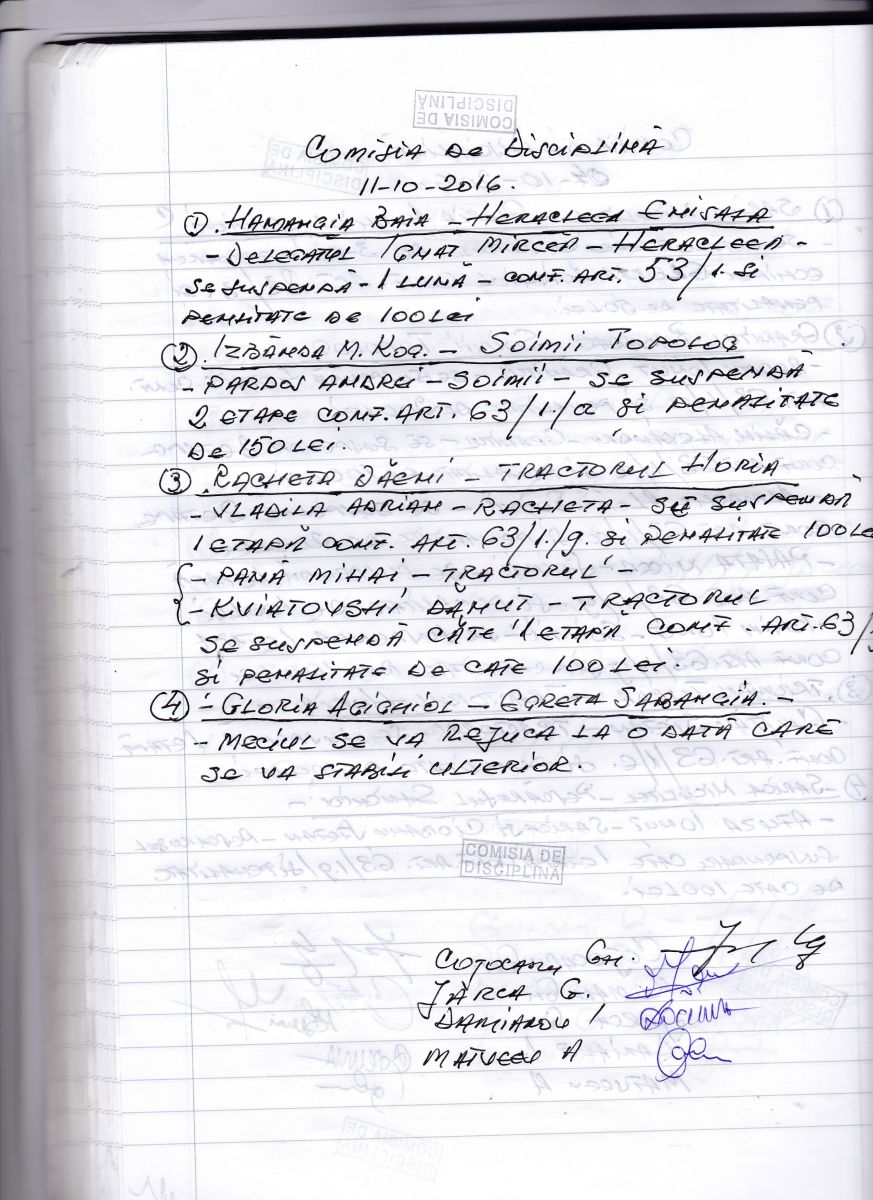 COMISIA DE
DISCIPLINĂ
COMISIA DE DISCIPLINĂ
11-10-2016.
1. HAMANGIA BAIA - HERACLEEA ENISALA
- DELEGATUL IGNAT MIRCEA - HERACLEEA -
SE SUSPENDĂ - 1 LUNĂ - CONF. ART. 53/1. SI
PENLITATE DE 100 LEI
2. IZBÂNDA M. KOG. - SOIMII TOPOLOG
- PARDOS ANDREI - SOIMII - SE SUSPENDĂ
2 ETAPE CONF. ART. 63/1./a SI PENALITATE
DE 150 LEI.
3. RACHETA DĂENI - TRACTORUL HORIA
- VLADILA ADRIAN - RACHETA - SE SUSPENDĂ
1 ETAPĂ CONF. ART. 63/1./g. SI PENALITATE 100 LEI
- PANĂ MIHAI - TRACTORUL -
- KVIATOVSHI DĂNUT - TRACTORUL
SE SUSPENDĂ CÂTE 1 ETAPĂ CONF. ART. 63/
SI PENALITATE DE CATE 100 LEI.
4. - GLORIA AGIGHIOL - EGRETA SARANGIA. -
- MECIUL SE VA REJUCA LA O DATĂ CARE
SE VA STABILI ULTERIOR.
COMISIA DE
DISCIPLINĂ
COJOCARU GH.
JÂRCA G.
DAMIANOV I
MATVEEV A